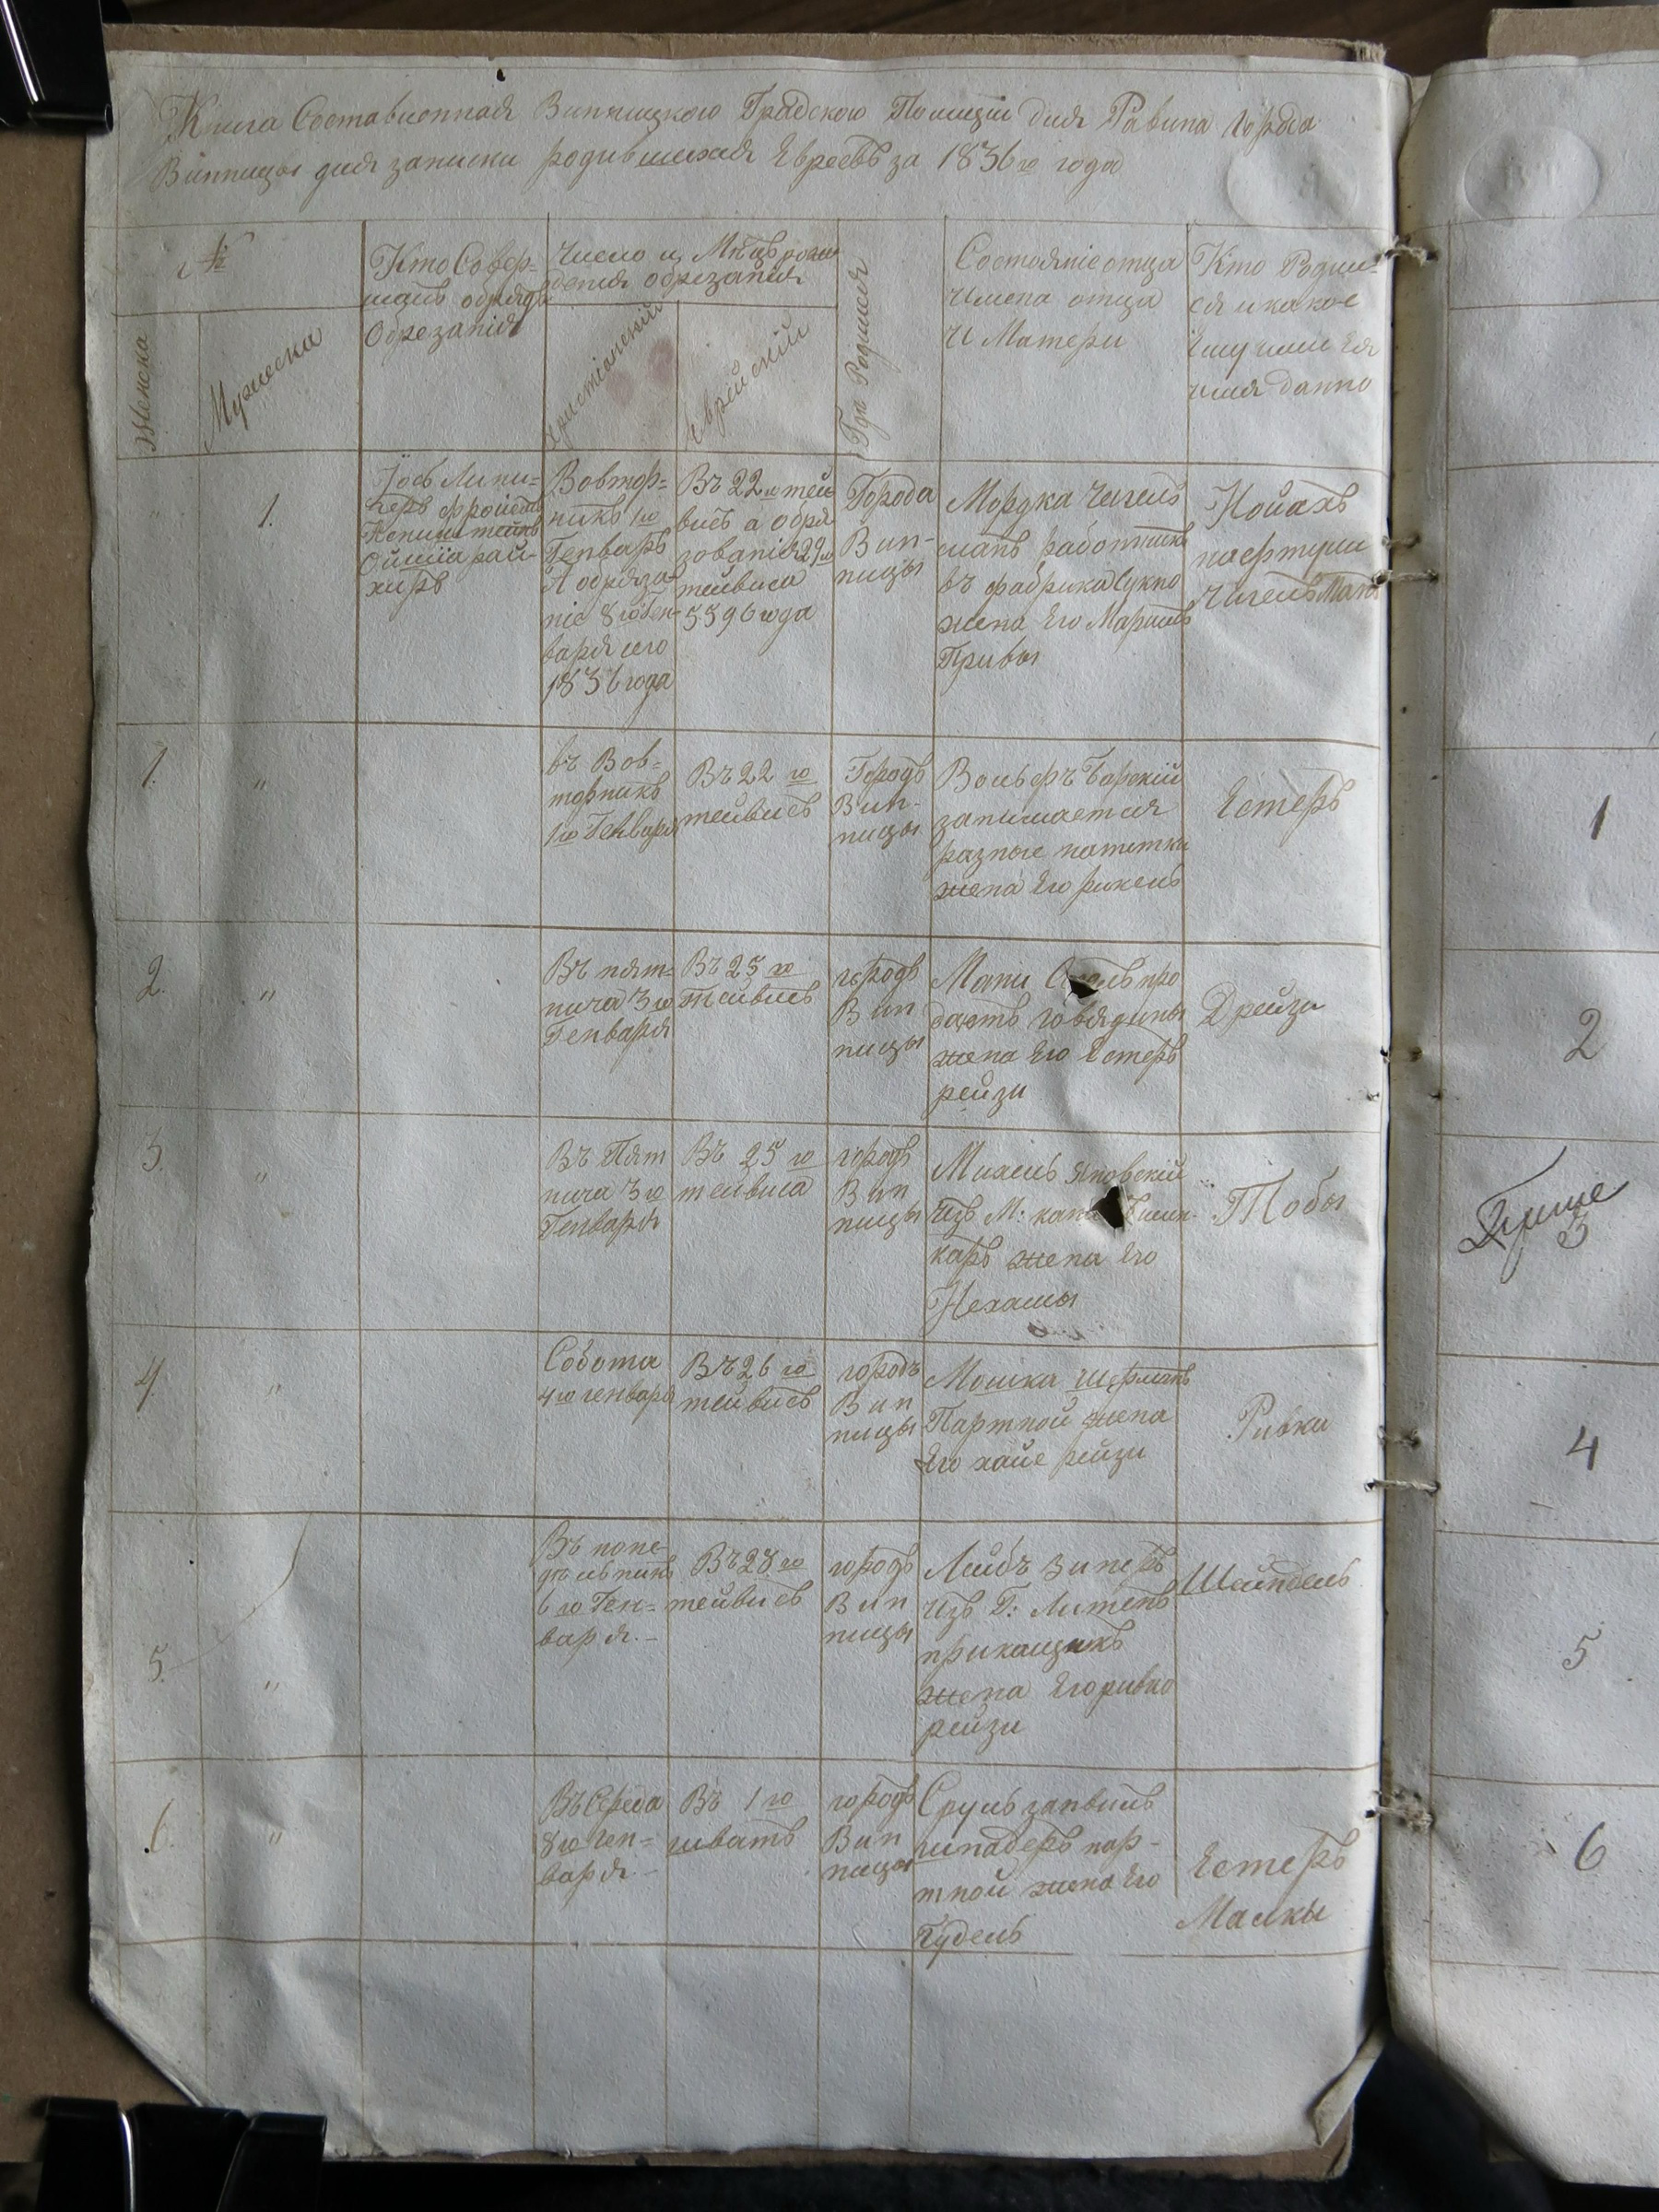 Книга Составленная Винницкою Градскою Полиціи для Равина города
Винницы для записки родившихся Евреевъ за 1836го года
№
Женска
Мужеска
Кто Совер=
шалъ обрядъ
Обрезанія
Число и Мѣцъ рож
денія обрезанія
Христіанский
Еврійский
Где Родился
Состояніе отца
Имена отца
И Матери
Кто Родил=
ся и какое
Ему или Ея
имя данно
"
1.
Вовтор=
никъ 1го
Генваръ
А обряза=
ніе 8го Ген=
варя сего
1836 года
Въ 22го тей
висъ а обря
зованія 29го
тейвиса
5596 года
Города
Вин-
ницы
Мордка
работникъ
въ фабрика Сукно
жена Его
Нойахъ
1.
"
въ Вов=
торникъ
1го Генваря
Въ 22 го
тейвисъ
Городъ
Вин-
ницы
Вольфъ Барский
занимается
разные
жена Его рикель
Естеръ
2.
"
Въ пят=
ница 3го
Генваря
Въ 25 го
Тейвисъ
городъ
Вин
ницы
Мани про
даетъ говядины
жена Его Естеръ
рейзи
Дрейзи
3.
"
Въ Пят
ница 3го
Генваря
Въ 25 го
тейвиса
городъ
Вин
ницы
Михель Яновский
Изъ М:
каръ жена Его
Нехамы
Тобы
4.
"
Собота
4го генваря
Въ 26 го
тейвисъ
городъ
Вин
ницы
Мошка Шерманъ
Партной жена
Его хайе рейзи
Ривка
5.
"
Въ поне=
дельникъ
6го Ген=
варя.-
Въ 28 го
тейвисъ
городъ
Вин
ницы
Лейбъ Зинеръ
Изъ Г: Литенъ
прикащикъ
жена Его ривка
рейзи
Шейндель
6.
"
Въ Середа
8го Ген=
варя.-
Въ 1 го
шватъ
городъ
Вин
ницы
Сруль занвиль
шнадеръ пор-
тной жена Его
Гудель
Естеръ
Малкы
1
2
3
4
5
6